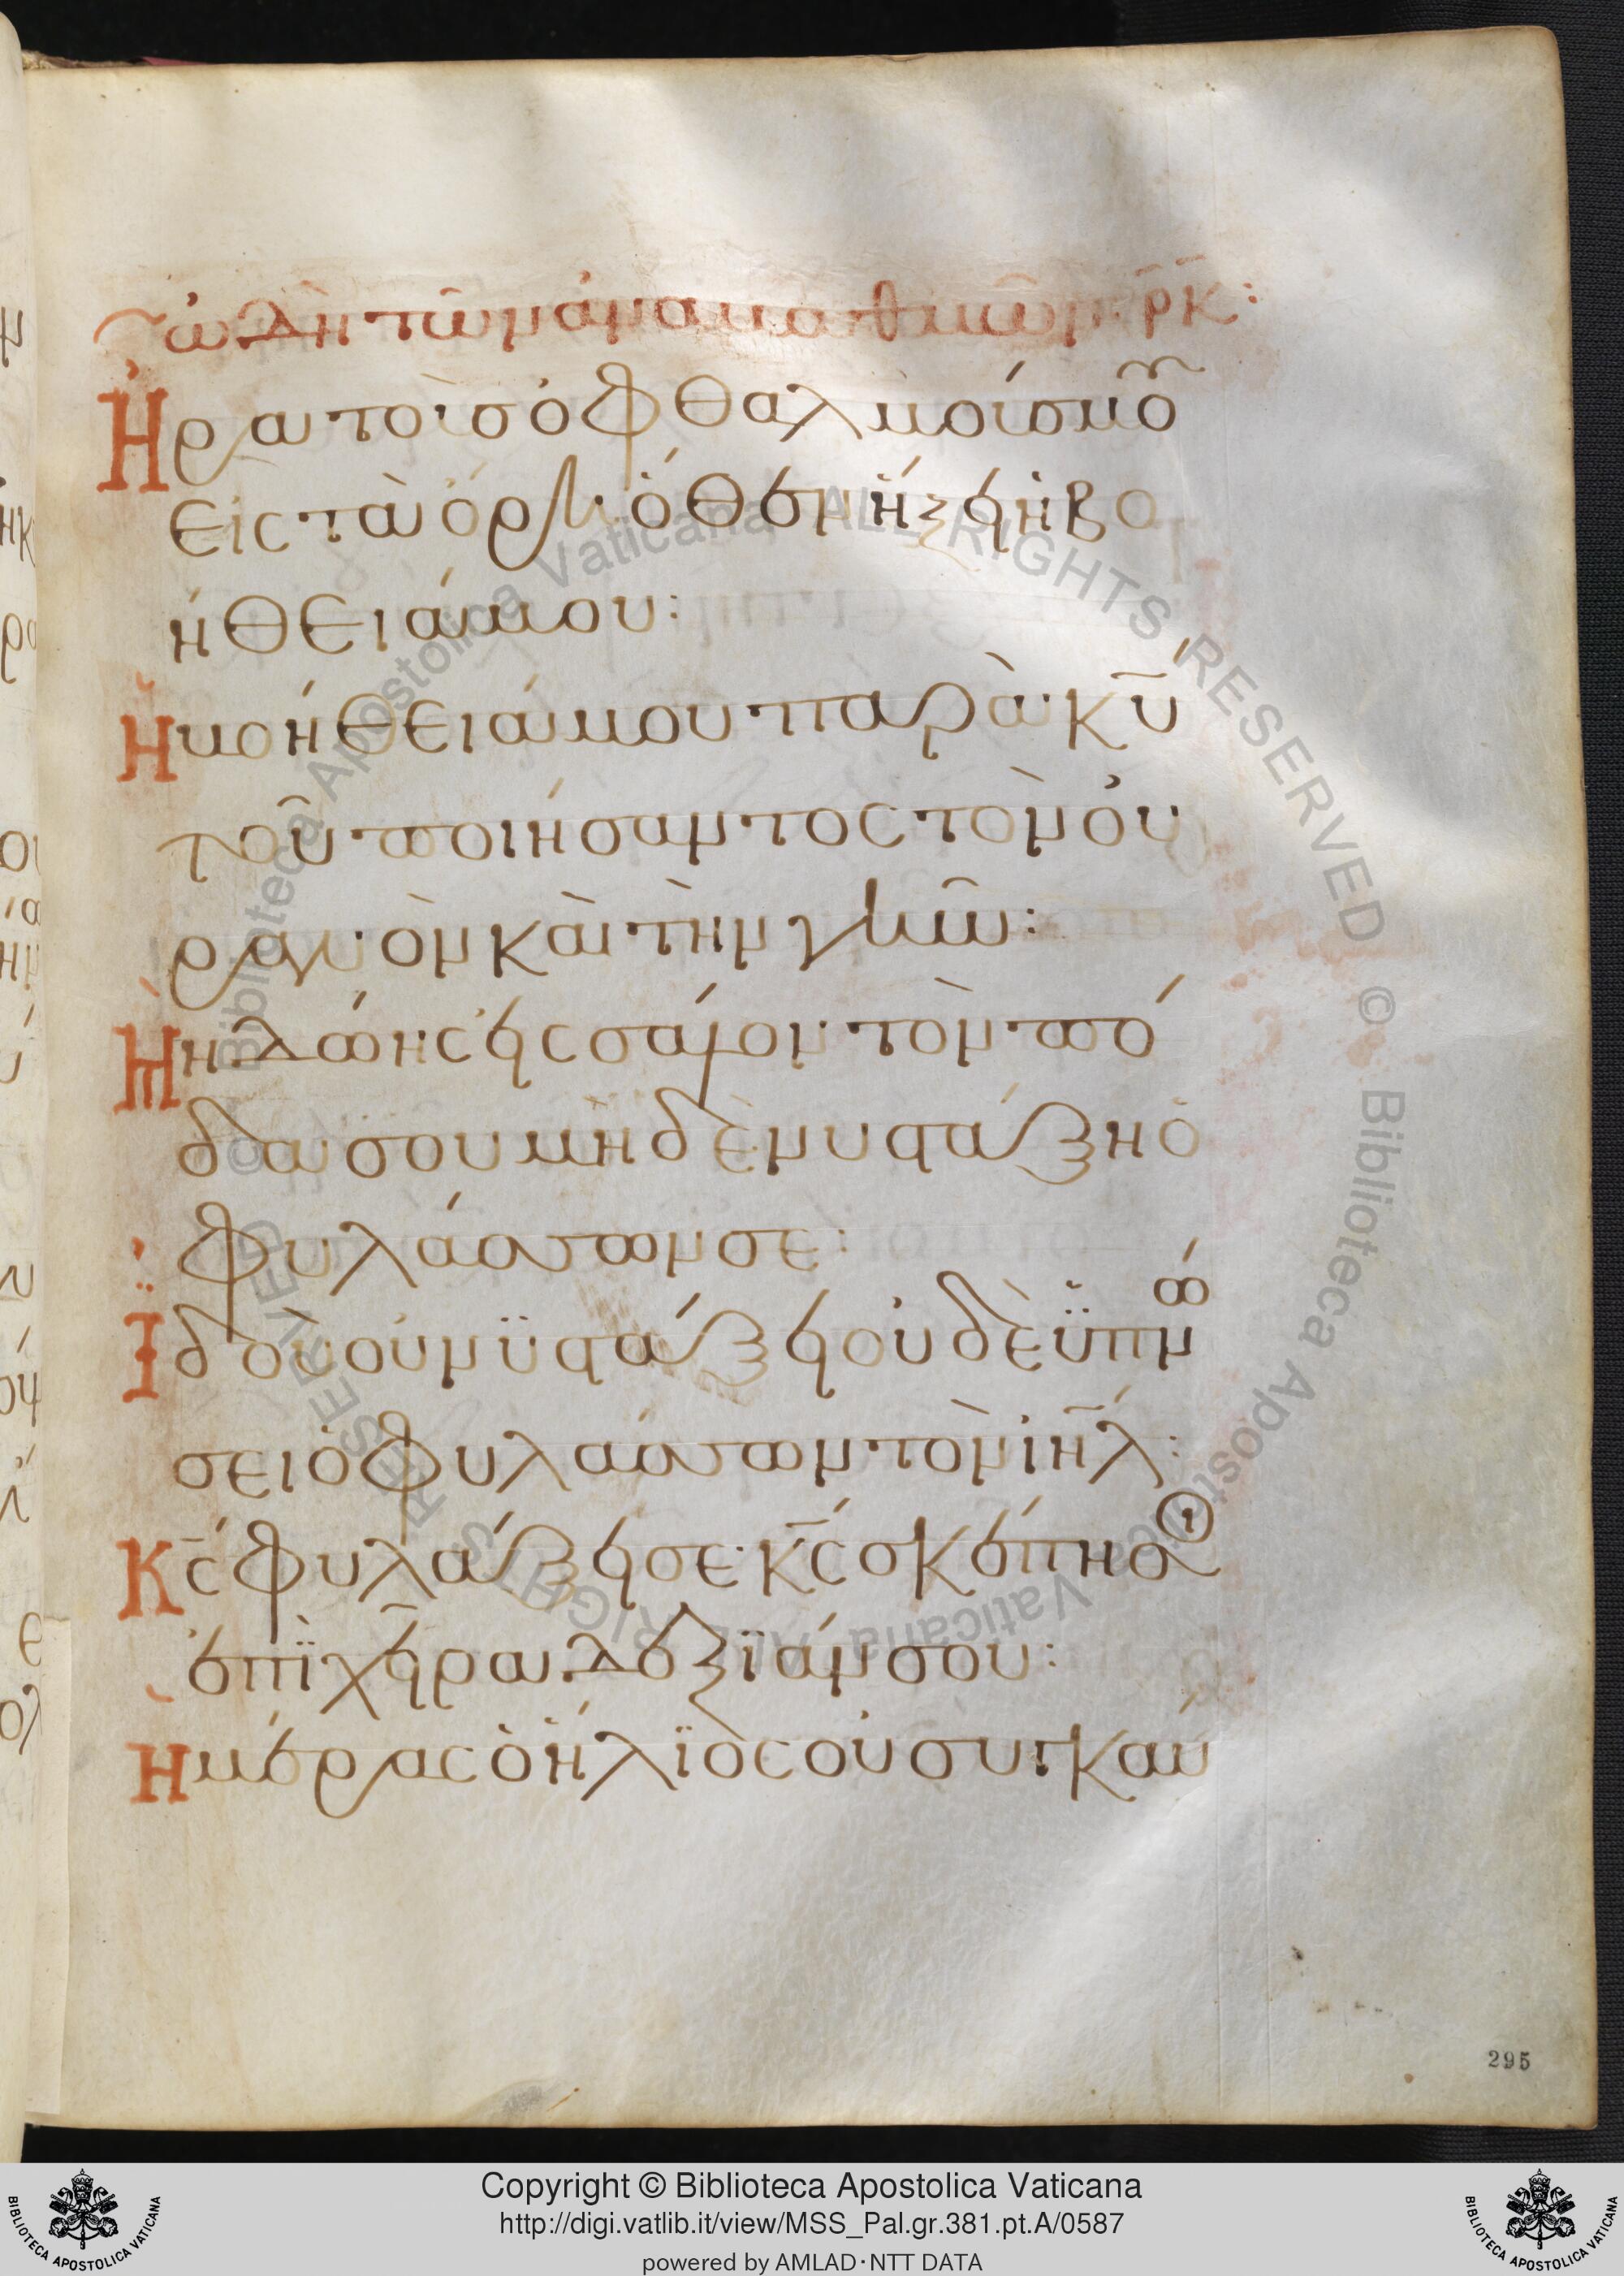 ὠδὴ τῶν ἀναβαθμῶν ρκ:
Ἦρα τοὺς ὀφθαλμούς μου
εἰς τὰ ὄρη· ὅθεν ἥξει ἡ βο
ήθειά μου:
Ἡ βοήθειά μου παρὰ κυ
τοῦ ποιήσαντος τὸν οὐ
ρανὸν καὶ τὴν γῆν:
Μὴ δώης εἰς σάλον τὸν πό
δα σου μηδὲ νυστάξη ὁ
φυλάσσων σε:
Ἰδοὺ οὐ νϋστάξει οὐδὲ ὑπνώ
σει ὁ φυλάσσων τὸν ιηλ:
Κς φυλάξει σε· κς σκέπη σοι
ἐπῒ χεῖρα δεξϊάν σου:
Ἡμέρας ὁ ἥλϊος οὐ συγκαύ
295
Copyright © Biblioteca Apostolica Vaticana
http://digi.vatlib.it/view/MSS_Pal.gr.381.pt.A/0587
powered by AMLAD·NTT DATA
BIBLIOTECA APOSTOLICA VATICANA
BIBLIOTECA APOSTOLICA VATICANA